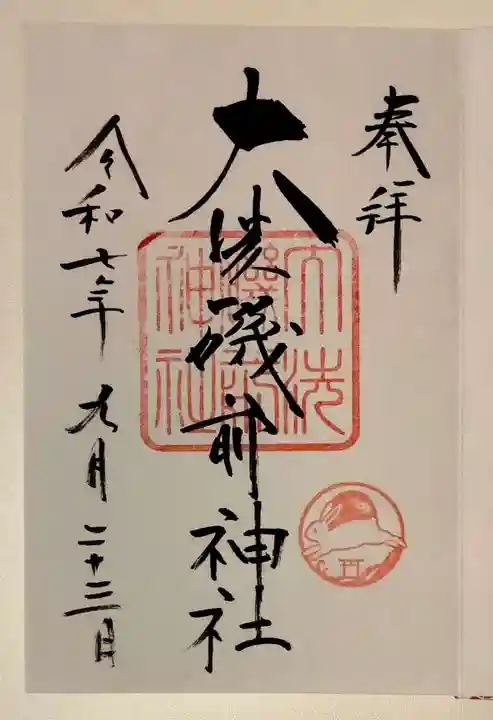 奉拝
大洗磯前神社
令和七年 九月二十三日
大洗
磯前
神社